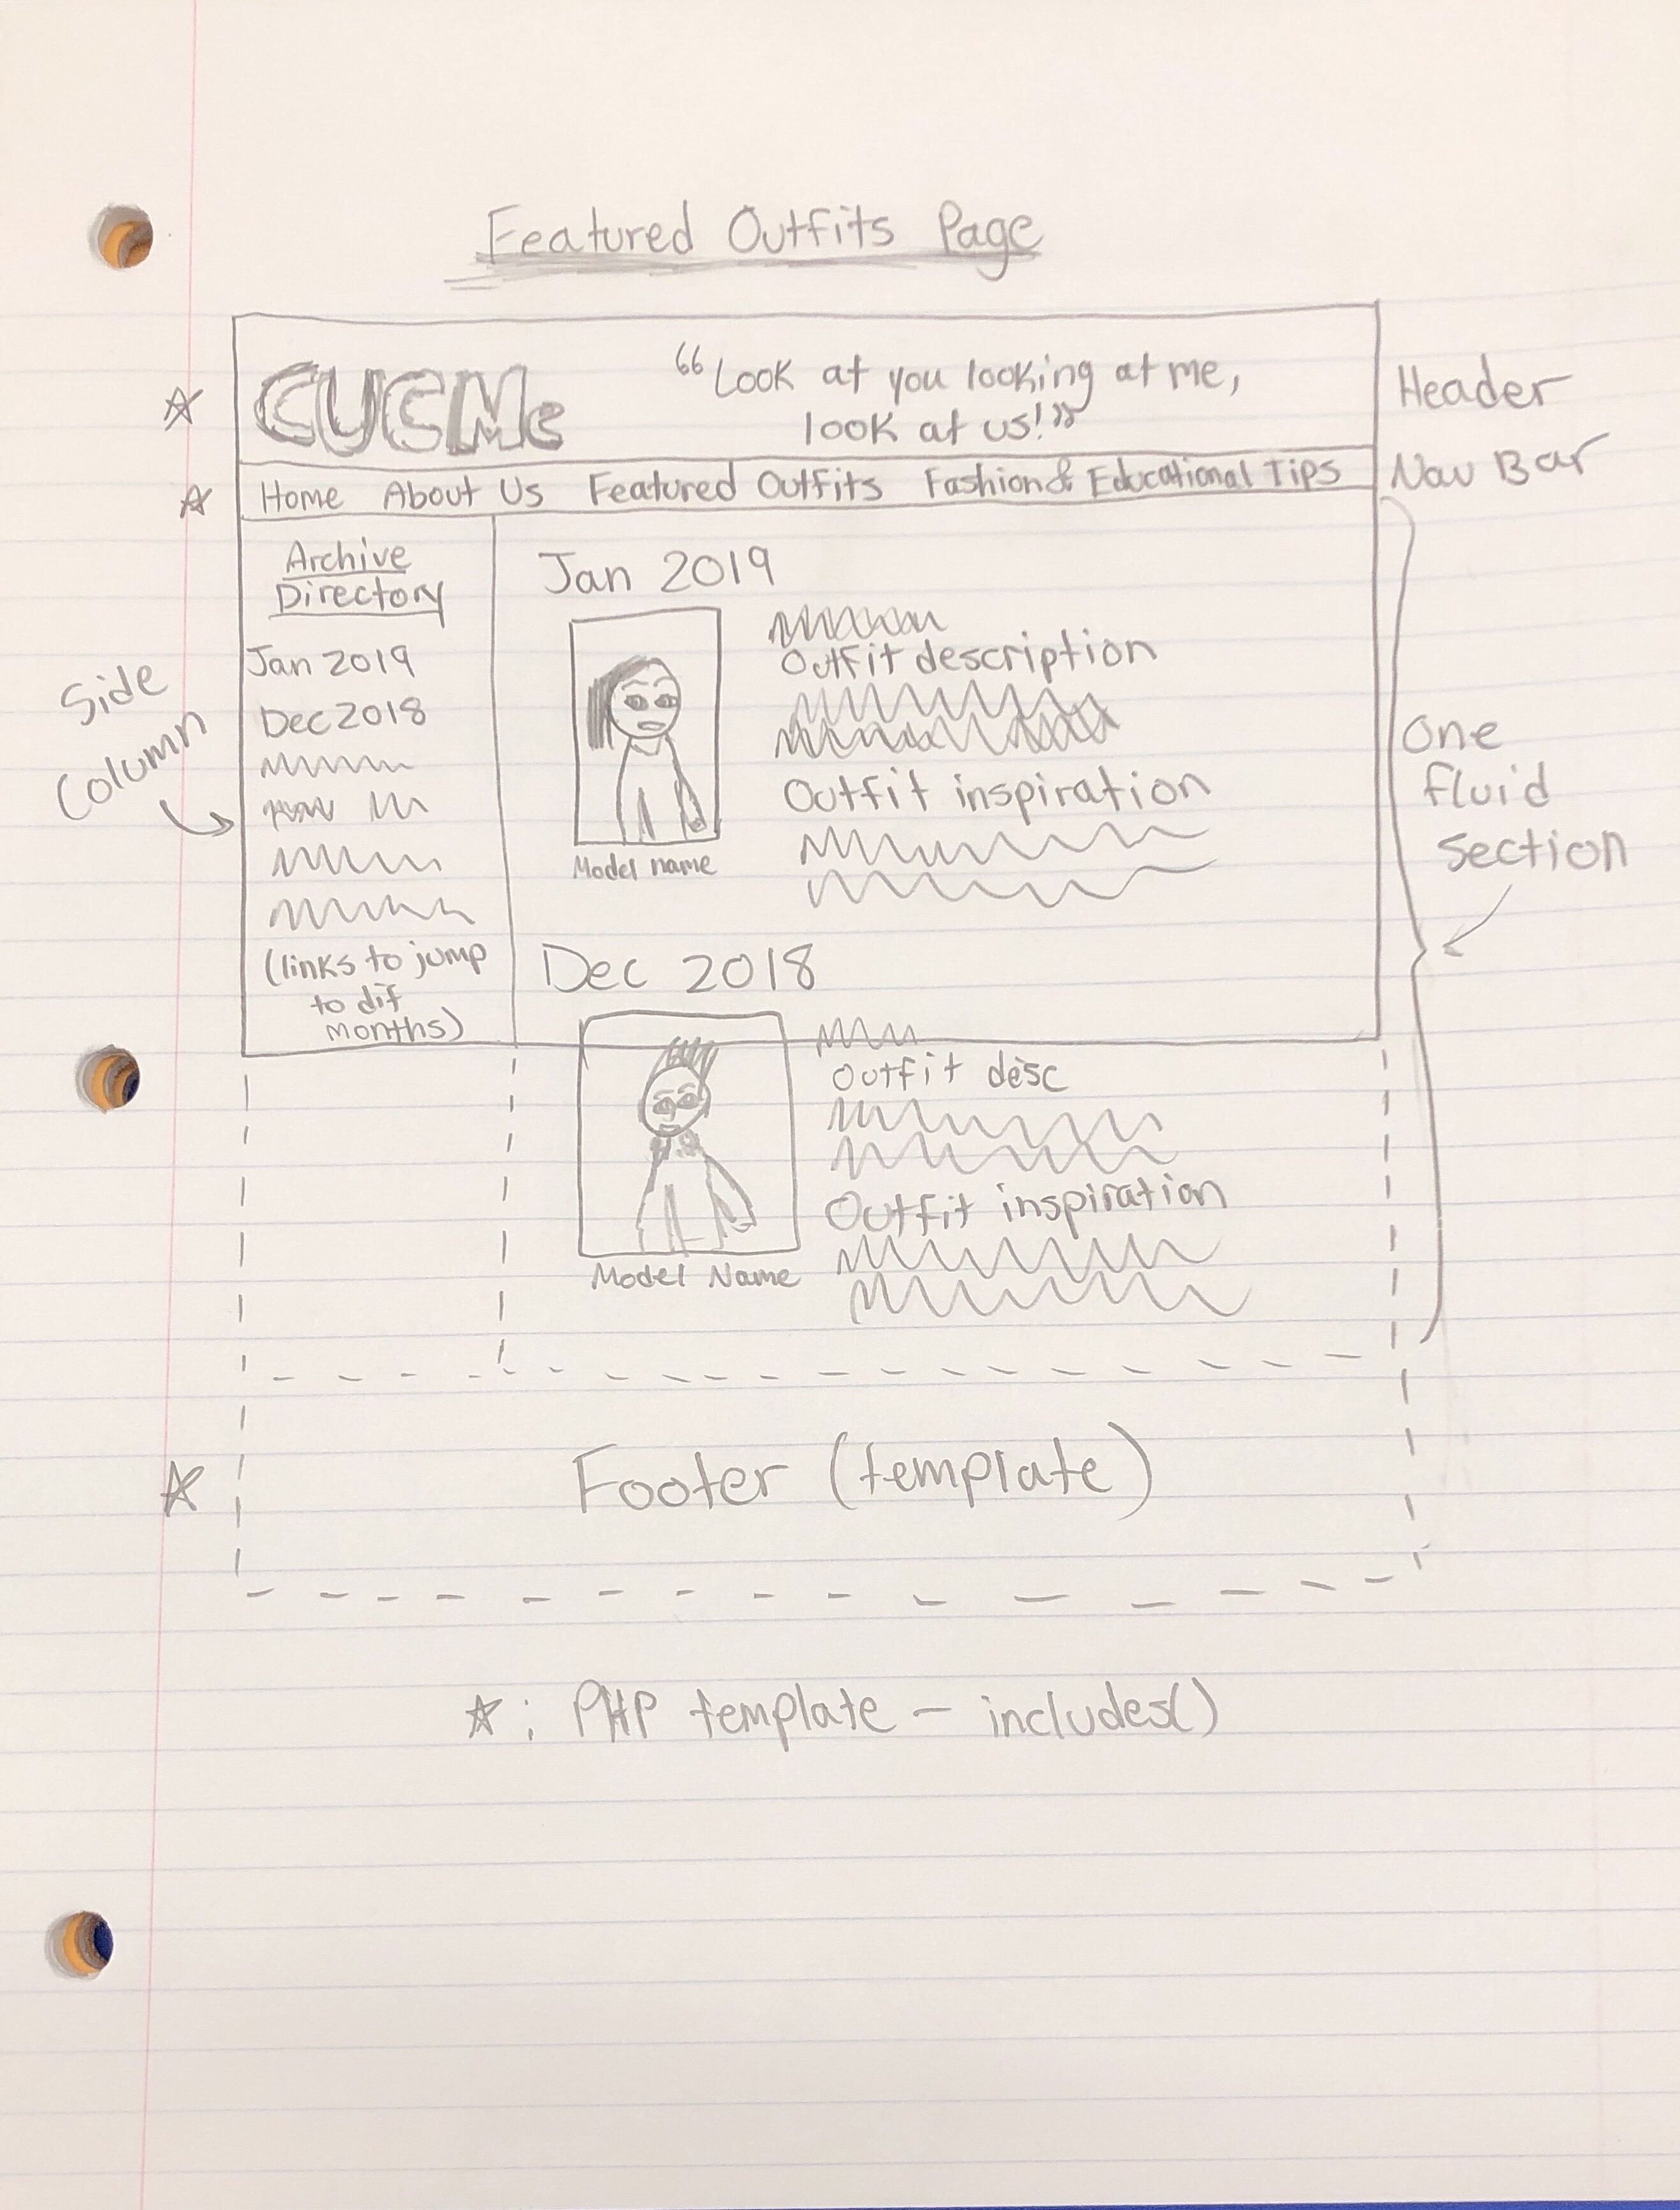 Featured Outfits Page
CUCMe
"Look at you looking at me,
look at us!"
Header
Nav Bar
Home About Us Featured Outfits Fashion & Educational Tips
Archive
Directory
Jan 2019
Dec 2018
(links to jump
to dif
months)
Side
Column
Jan 2019
Outfit description
Outfit inspiration
Model name
Dec 2018
Outfit desc
Outfit inspiration
Model Name
One
fluid
section
Footer (template)
☆: PHP template - includes()